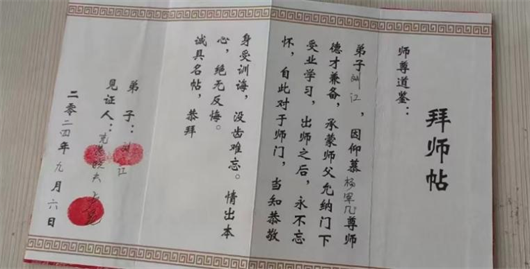 拜师帖
师尊道鉴：
弟子 江，因仰慕杨军 尊师
德才兼备，承蒙师父允纳门下
受业学习，出师之后，永不忘
怀，自此对于师门，当知恭敬
身受训诲，没齿难忘。情出本
心，绝无反悔。
诚具名帖，恭拜
弟子： 江
见证人：
二零二四年九月六日